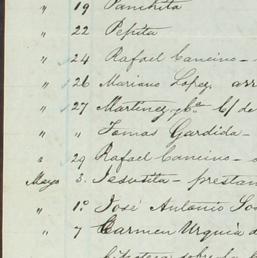 " 19 Panchita
" 22 Pepita
" 24 Rafael Cancino -
" 26 Mariano Lopez, arr
" 27 Martinez y Ca. C/ de
" " Tomas Gardida -
" 29 Rafael Cancino -
Mayo 3. Jesusita - prestan
" 1º José Antonio
" 7 Carmen Urquia d
hipoteca sobre la